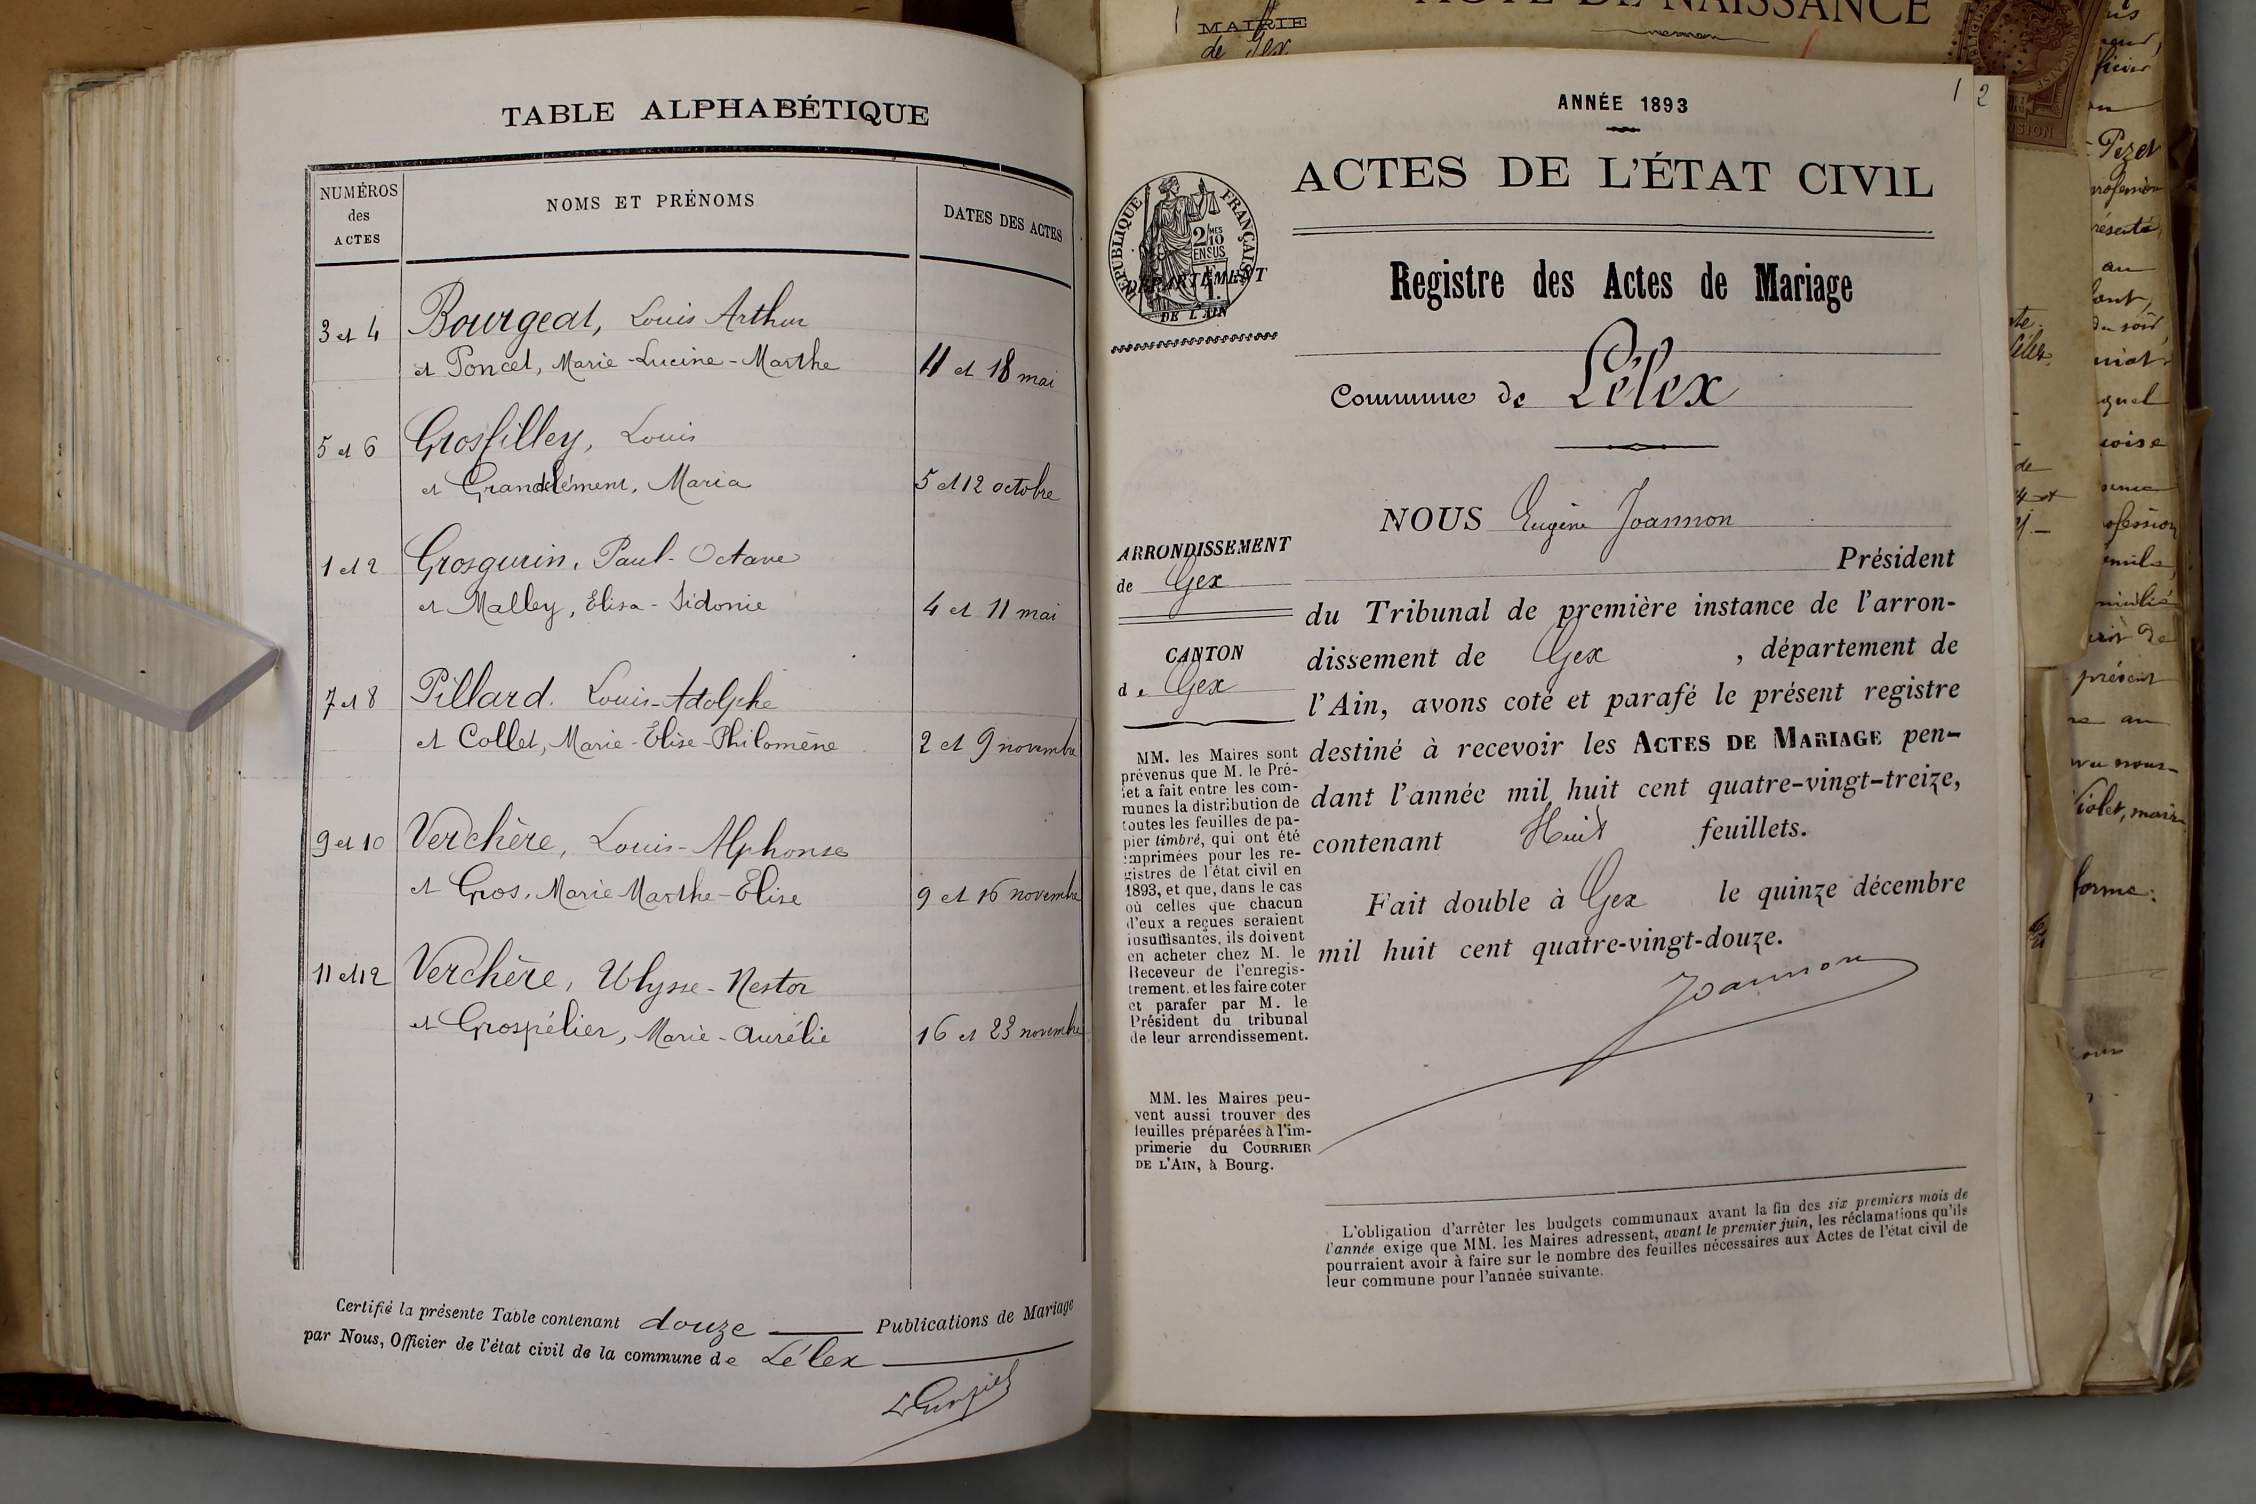 TABLE ALPHABÉTIQUE
NUMÉROS des ACTES
NOMS ET PRÉNOMS
DATES DES ACTES
3 et 4 Bourgeat, Louis Arthur
et Poncet, Marie-Lucine-Marthe 11 et 18 mai
5 et 6 Grosfilley, Louis
et Grandclément, Maria 5 et 12 octobre
1 et 2 Grosgurin, Paul-Octave
et Malley, Elisa-Sidonie 4 et 11 mai
7 et 8 Pillard. Louis-Adolphe
et Collet, Marie-Elise-Philomène 2 et 9 novembre
9 et 10 Verchère, Louis-Alphonse
et Gros, Marie Marthe-Elise 9 et 16 novembre
11 et 12 Verchère, Ulysse-Nestor
et Grospélier, Marie-Aurélie 16 et 23 novembre
Certifié la présente Table contenant douze Publications de Mariage
par Nous, Officier de l'état civil de la commune de Lélex
MAIRIE
de Gex
ACTE DE NAISSANCE
1 2
ANNÉE 1893
ACTES DE L'ÉTAT CIVIL
RÉPUBLIQUE FRANÇAISE
2/10 MES
EN SUS
DÉPARTEMENT
DE L'AIN
Registre des Actes de Mariage
Commune de Lélex
NOUS Eugène Joannon
Président
du Tribunal de première instance de l'arron-
dissement de Gex , département de
l'Ain, avons coté et parafé le présent registre
destiné à recevoir les ACTES DE MARIAGE pen-
dant l'année mil huit cent quatre-vingt-treize,
contenant Huit feuillets.
Fait double à Gex le quinze décembre
mil huit cent quatre-vingt-douze.
Joannon
ARRONDISSEMENT
de Gex
CANTON
de Gex
MM. les Maires sont
prévenus que M. le Pré-
fet a fait entre les com-
munes la distribution de
toutes les feuilles de pa-
pier timbré, qui ont été
imprimées pour les re-
gistres de l'état civil en
1893, et que, dans le cas
où celles que chacun
d'eux a reçues seraient
insuffisantes, ils doivent
en acheter chez M. le
Receveur de l'enregis-
trement. et les faire coter
et parafer par M. le
Président du tribunal
de leur arrondissement.
MM. les Maires peu-
vent aussi trouver des
feuilles préparées à l'im-
primerie du COURRIER
DE L'AIN, à Bourg.
L'obligation d'arrêter les budgets communaux avant la fin des six premiers mois de
l'année exige que MM. les Maires adressent, avant le premier juin, les réclamations qu'ils
pourraient avoir à faire sur le nombre des feuilles nécessaires aux Actes de l'état civil de
leur commune pour l'année suivante.
Pezet
présent
Violet, maire
forme: